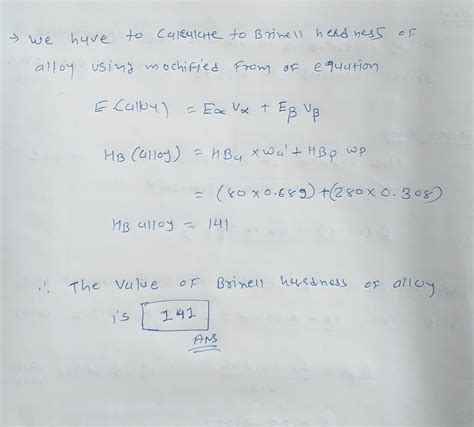 → we have to Calculate to Brinell hardness of
alloy using mochified from of equation
E (alloy) = Eα Vα + Eβ Vβ
HB (alloy) = HBα × Wα' + HBp wp
= (80 × 0.689) + (280 × 0.308)
HB alloy = 141
∴ The value of Brinell hardness of alloy
i's 141
Ans